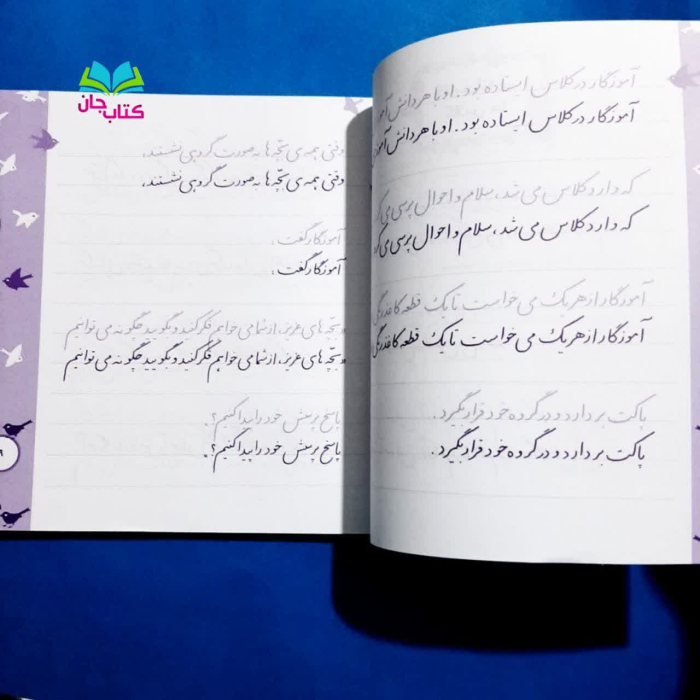 کتاب جان
آموزگار در کلاس ایستاده بود. او با هر دانش آمو
آموزگار در کلاس ایستاده بود. او با هر دانش آموز
که وارد کلاس می شد، سلام و احوال پرسی می کر
که وارد کلاس می شد، سلام و احوال پرسی می کرد
آموزگار از هر یک می خواست تا یک قطعه کاغذ رنگی
آموزگار از هر یک می خواست تا یک قطعه کاغذ رنگی
پاکت بردارد و در گروه خود قرار بگیرد.
پاکت بردارد و در گروه خود قرار بگیرد.
وقتی همه ی بچّه ها به صورت گروهی نشستند،
وقتی همه ی بچّه ها به صورت گروهی نشستند،
آموزگار گفت:
آموزگار گفت:
بچّه های عزیز، از شما می خواهم فکر کنید و بگویید چگونه می توانیم
بچّه های عزیز، از شما می خواهم فکر کنید و بگویید چگونه می توانیم
پاسخ پرسش خود را پیدا کنیم؟
پاسخ پرسش خود را پیدا کنیم؟